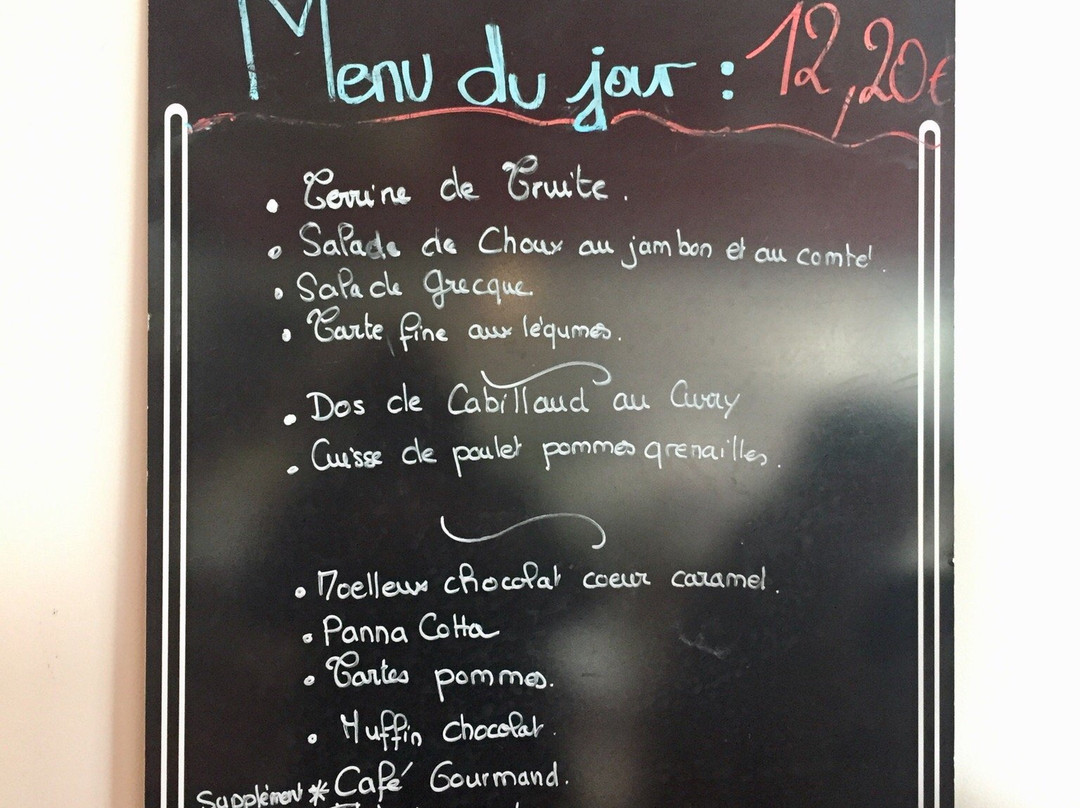 Menu du jour : 12,20€
• Terrine de Truite.
• Salade de Choux au jambon et au comté.
• Salade grecque.
• Tarte fine aux légumes.
• Dos de Cabillaud au Curry
• Cuisse de poulet pommes grenailles.
• Moelleux chocolat coeur caramel.
• Panna Cotta
• Tartes pommes.
• Muffin chocolat.
Supplément * Café Gourmand.